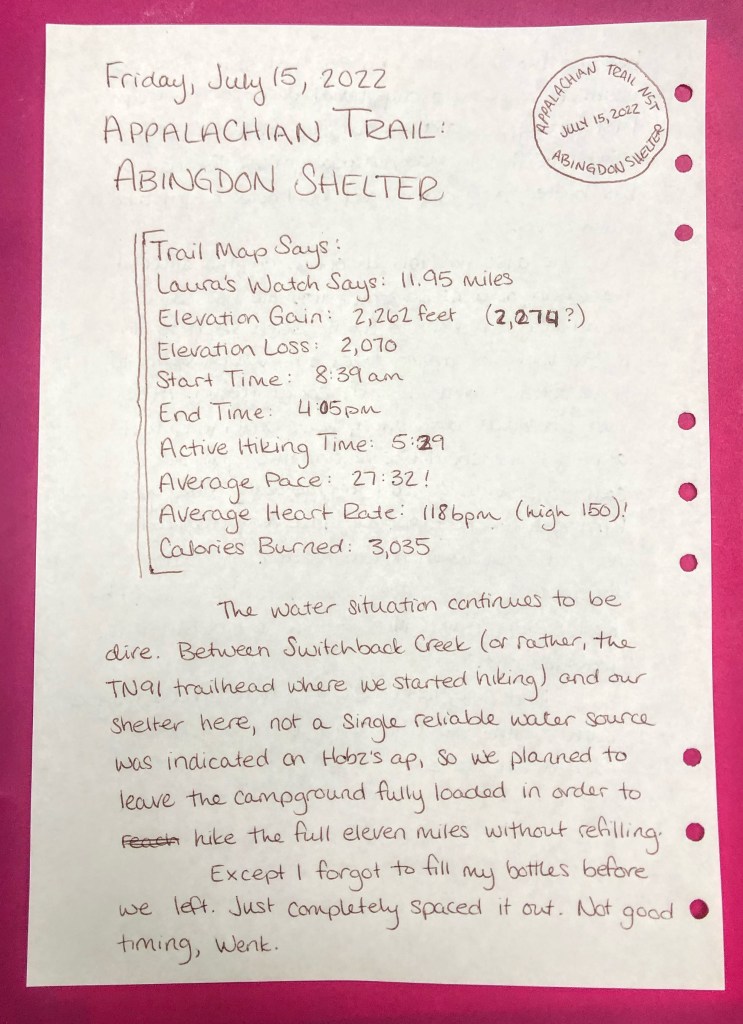 Friday, July 15, 2022
APPALACHIAN TRAIL:
ABINGDON SHELTER
APPALACHIAN TRAIL NST
JULY 15, 2022
ABINGDON SHELTER
Trail Map Says:
Laura's Watch Says: 11.95 miles
Elevation Gain: 2,262 feet (2,274?)
Elevation Loss: 2,070
Start Time: 8:39am
End Time: 4:05pm
Active Hiking Time: 5:29
Average Pace: 27:32!
Average Heart Rate: 118bpm (high 150)!
Calories Burned: 3,035
The water situation continues to be
dire. Between Switchback Creek (or rather, the
TN91 trailhead where we started hiking) and our
shelter here, not a single reliable water source
was indicated on Hobz's ap, so we planned to
leave the campground fully loaded in order to
reach hike the full eleven miles without refilling.
Except I forgot to fill my bottles before
we left. Just completely spaced it out. Not good
timing, Wenk.